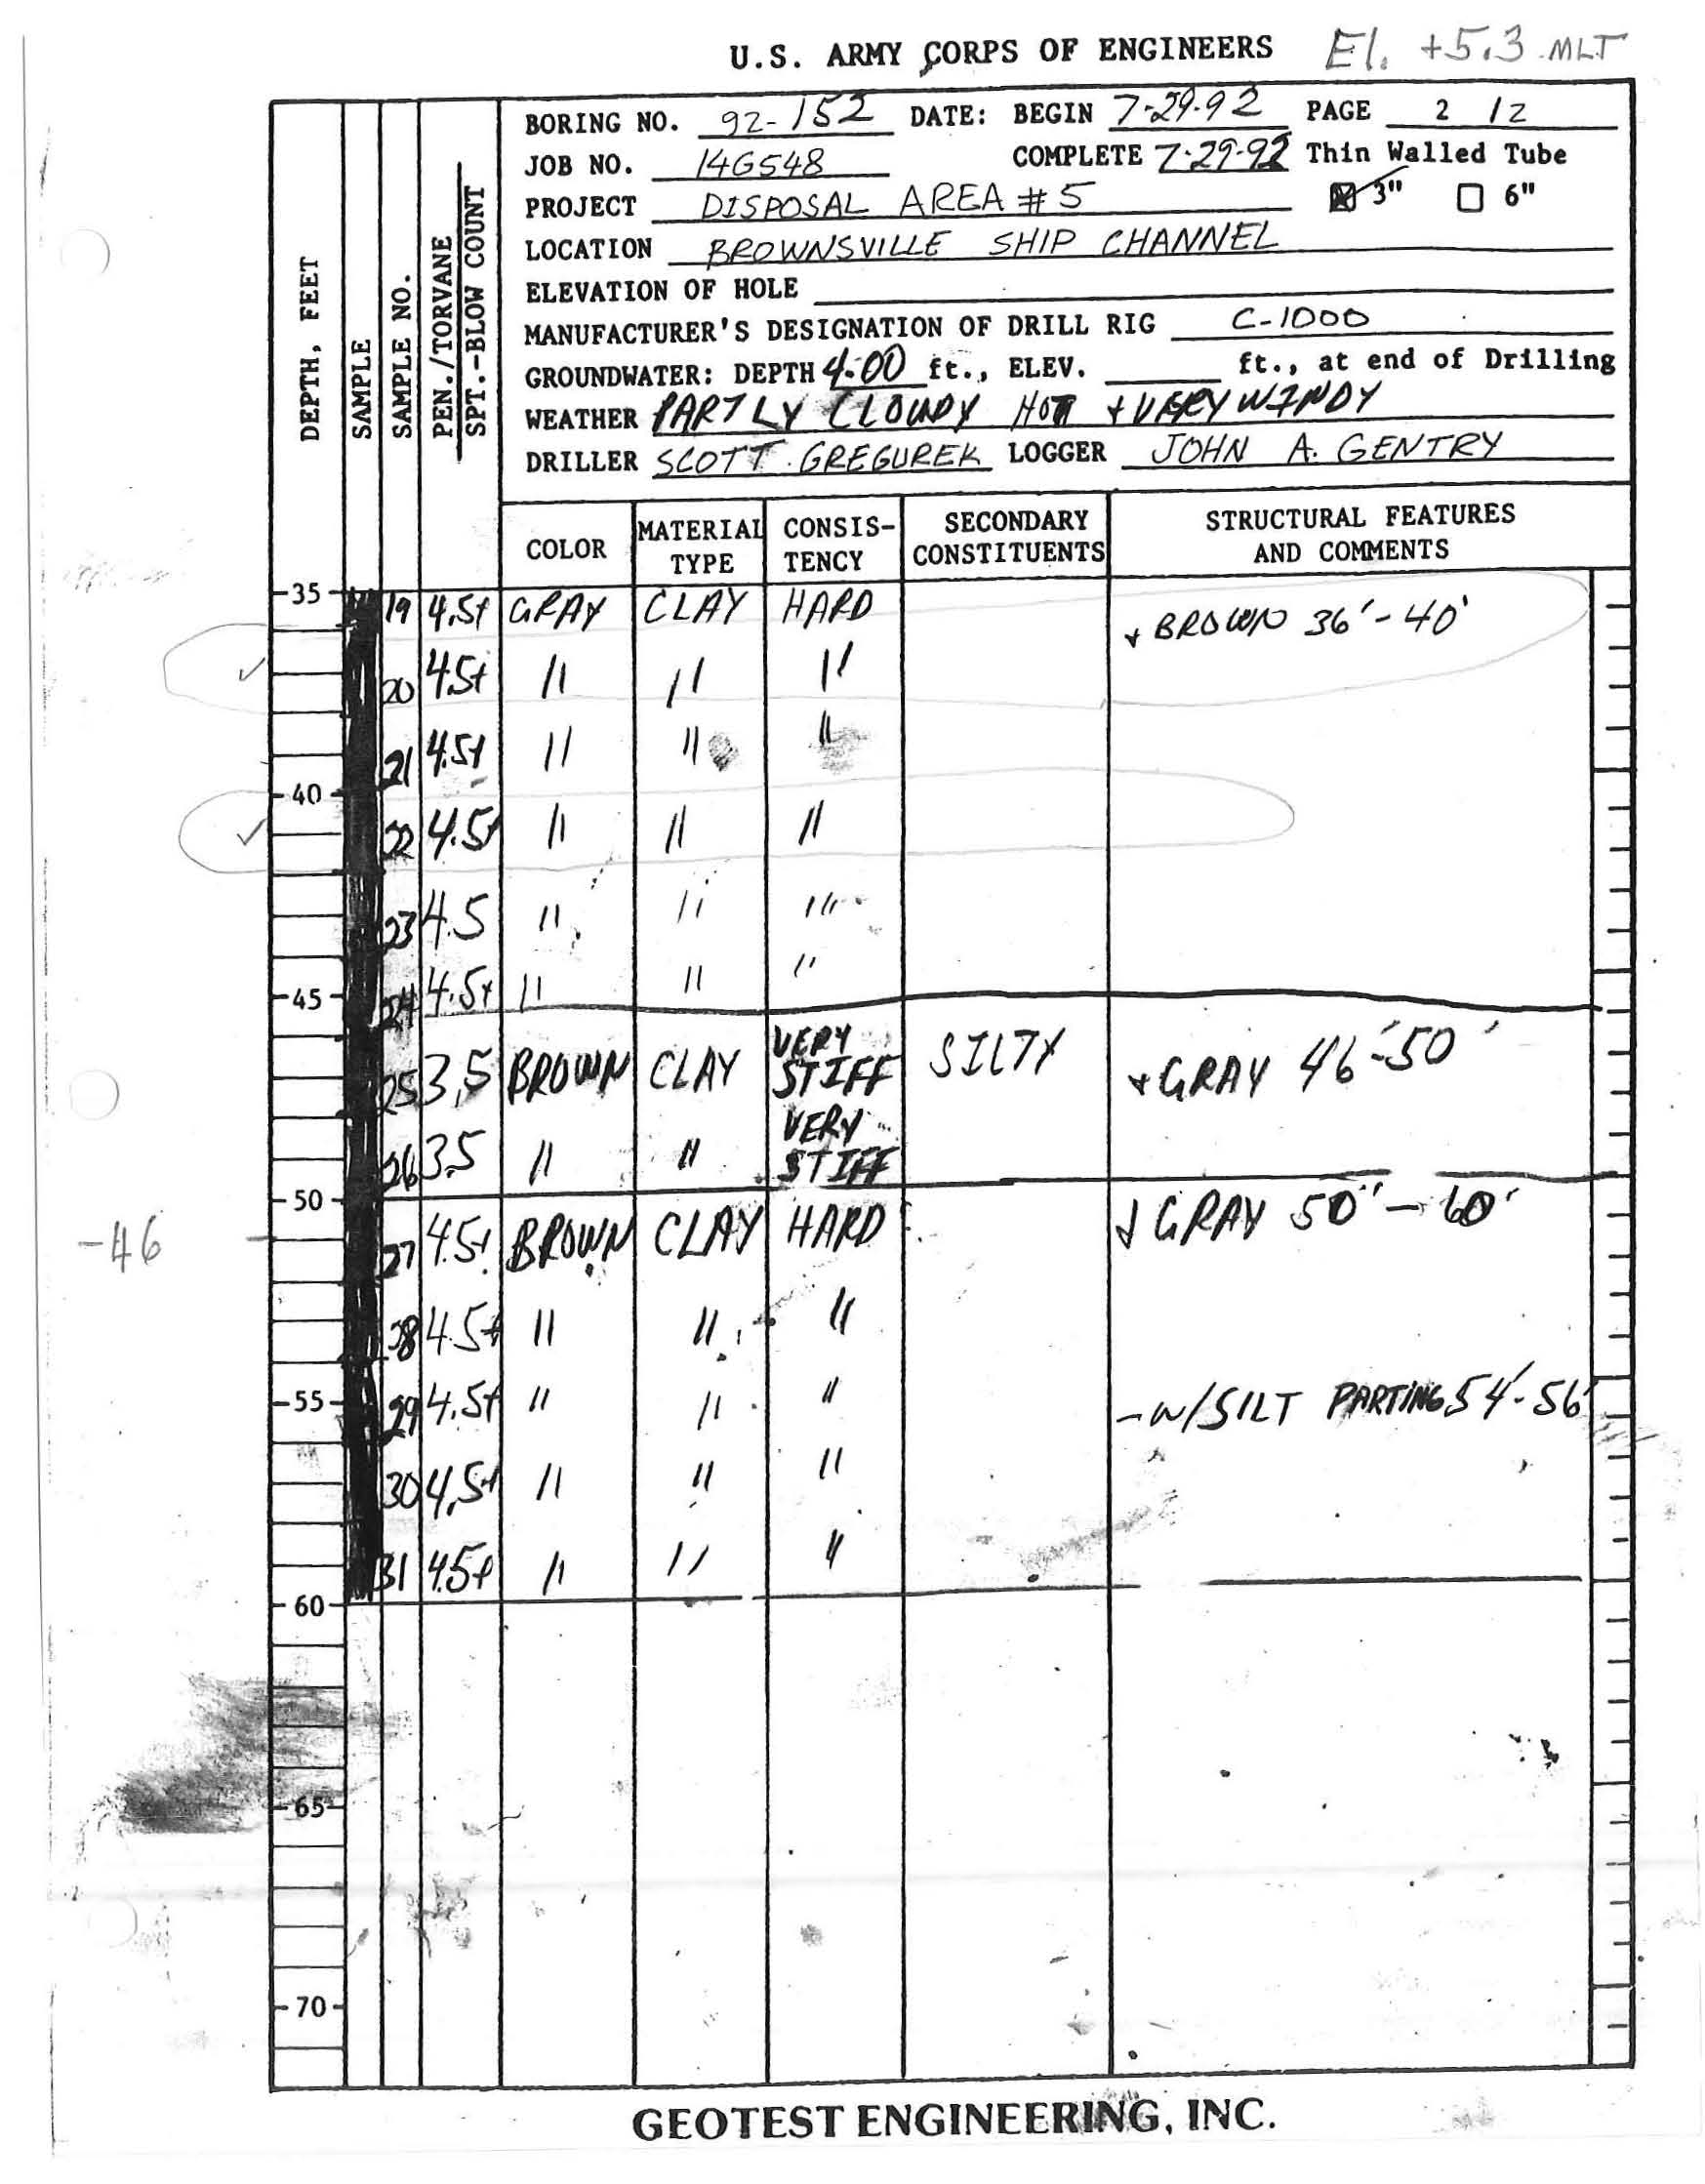 U.S. ARMY CORPS OF ENGINEERS El. +5.3 MLT
BORING NO. 92-152 DATE: BEGIN 7-29-92 PAGE 2 / 2
JOB NO. 14G548 COMPLETE 7-29-92 Thin Walled Tube
PROJECT DISPOSAL AREA #5 ☒ 3" ☐ 6"
LOCATION BROWNSVILLE SHIP CHANNEL
ELEVATION OF HOLE
MANUFACTURER'S DESIGNATION OF DRILL RIG C-1000
GROUNDWATER: DEPTH 4.00 ft., ELEV. ft., at end of Drilling
WEATHER PARTLY CLOUDY HOT + VERY WINDY
DRILLER SCOTT GREGUREK LOGGER JOHN A. GENTRY
DEPTH, FEET
SAMPLE
SAMPLE NO.
PEN./TORVANE
SPT.-BLOW COUNT
COLOR MATERIAL TYPE CONSIS-TENCY SECONDARY CONSTITUENTS STRUCTURAL FEATURES AND COMMENTS
35 19 4.5+ GRAY CLAY HARD + BROWN 36'-40'
✓ 20 4.5+ " " "
21 4.5+ " " "
40
✓ 22 4.5+ " " "
23 4.5 " " "
45 24 4.5+ " " "
25 3.5 BROWN CLAY VERY STIFF SILTY + GRAY 46'-50'
26 3.5 " " VERY STIFF
50
-46 27 4.5+ BROWN CLAY HARD + GRAY 50'-60'
28 4.5+ " " "
55 29 4.5+ " " " - W/SILT PARTING 54'-56'
30 4.5+ " " "
31 4.5+ " " "
60
65
70
GEOTEST ENGINEERING, INC.